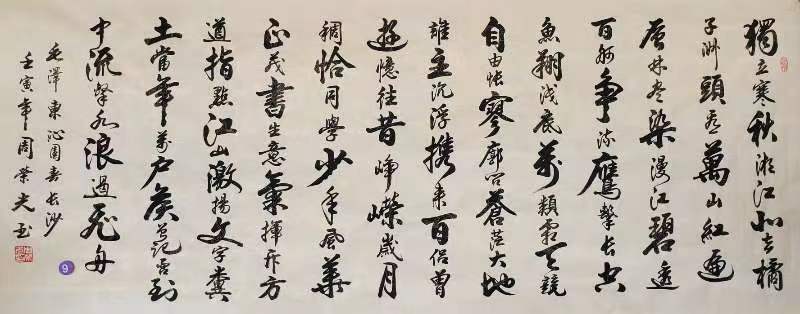 獨立寒秋湘江北去橘
子洲頭看萬山紅遍
層林盡染漫江碧透
百舸争流鷹擊長空
魚翔淺底萬類霜天競
自由悵寥廓問蒼茫大地
誰主沉浮携來百侣曾
遊憶往昔崢嶸歲月
稠恰同學少年風華
正茂書生意氣揮斥方
道指點江山激揚文字糞
土當年萬戶侯曾記否到
中流擊水浪遏飛舟
毛澤東沁園春長沙
壬寅年周榮光
9